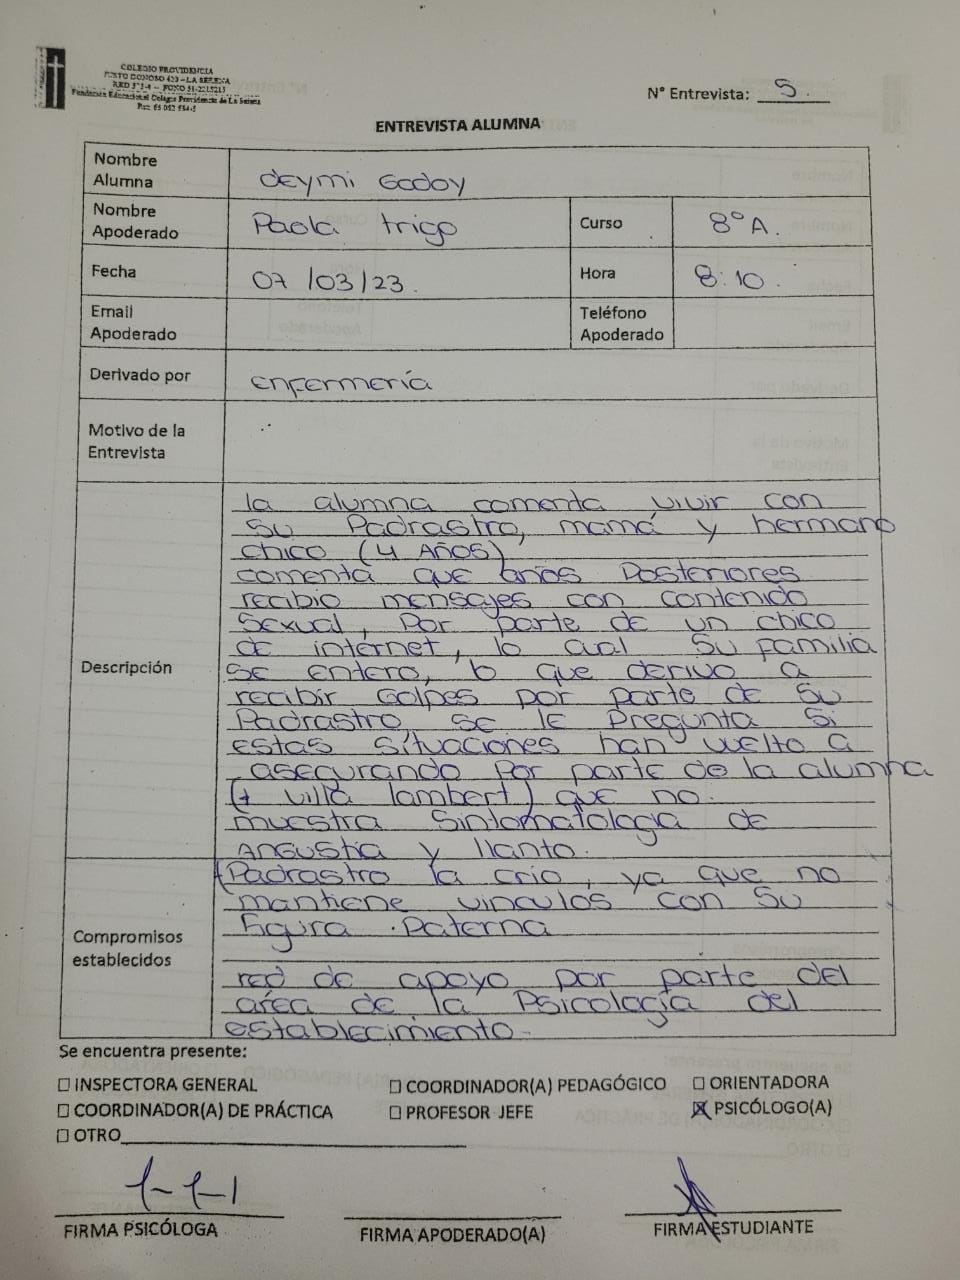 COLEGIO PROVIDENCIA
JUSTO DONOSO 420 – LA SERENA
Fundación Educacional Colegio Providencia de La Serena
N° Entrevista: 5.
ENTREVISTA ALUMNA
Nombre Alumna
Deymi Godoy
Nombre Apoderado
Paola trigo
Curso
8° A.
Fecha
07/03/23.
Hora
8:10.
Email Apoderado
Teléfono Apoderado
Derivado por
enfermería
Motivo de la Entrevista
Descripción
la alumna comenta vivir con
su Padrastro, mamá y hermano
chico (4 AÑOS)
comenta que años Posteriores
recibio mensajes con contenido
sexual, Por parte de un chico
de internet, lo cual su familia
se entero, lo que derivo a
recibir Golpes por parte de su
Padrastro, se le Pregunta si
estas situaciones han vuelto a
, asegurando Por parte de la alumna
(+ villa lambert) que no.
muestra sintomatologia de
ANGUStia y llanto.
Compromisos establecidos
(Padrastro la crio, ya que no
mantiene vinculos con su
figura Paterna
red de apoyo por parte del
área de la Psicología del
establecimiento.
Se encuentra presente:
☐ INSPECTORA GENERAL ☐ COORDINADOR(A) PEDAGÓGICO ☐ ORIENTADORA
☐ COORDINADOR(A) DE PRÁCTICA ☐ PROFESOR JEFE ☒ PSICÓLOGO(A)
☐ OTRO
FIRMA PSICÓLOGA FIRMA APODERADO(A) FIRMA ESTUDIANTE